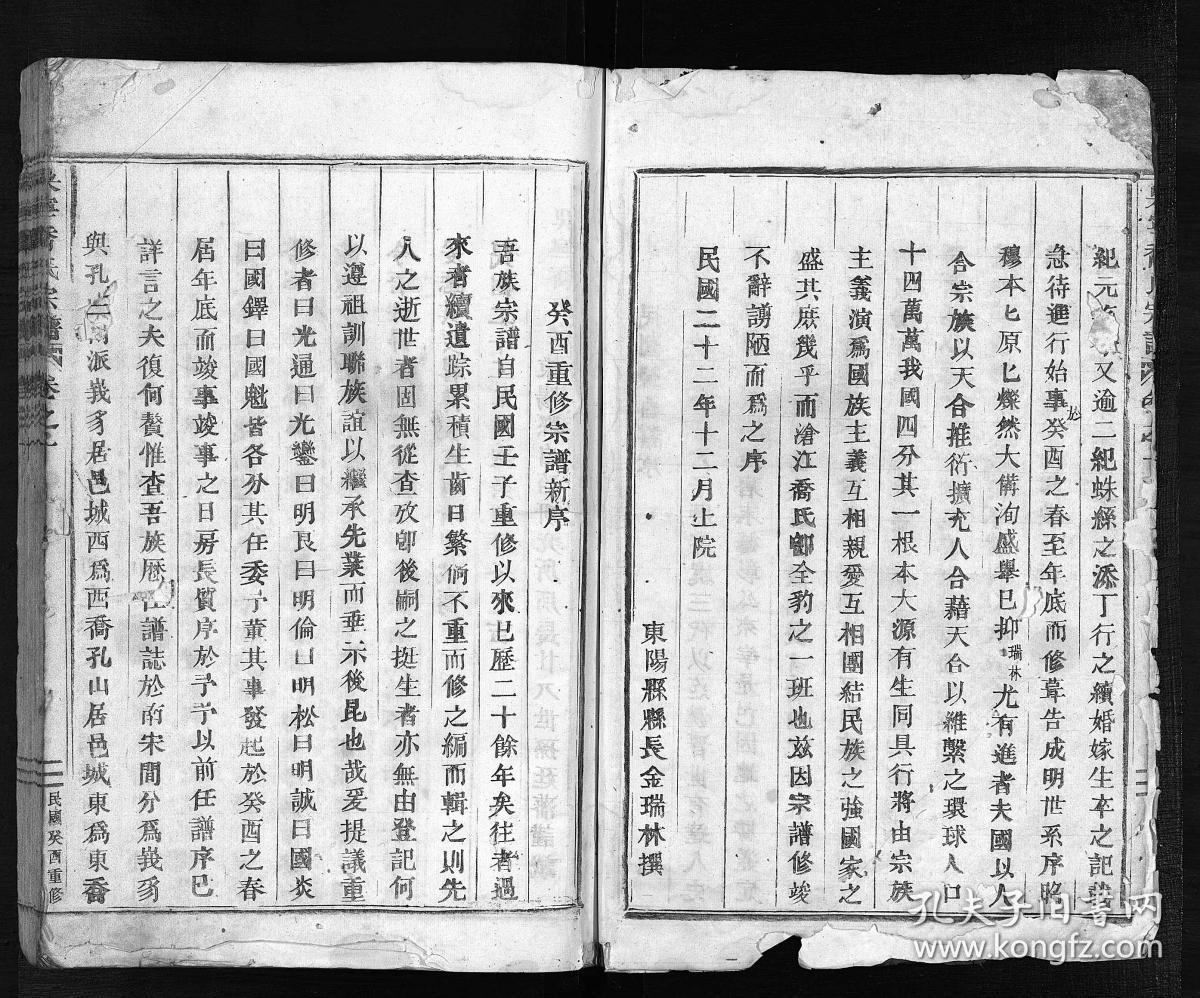 紀元又逾二紀蛛絲之添丁行之續婚嫁生卒之記載
急待進行始事於癸酉之春至年底而修葺告成明世系序昭
穆本匕原匕燦然大備洵盛舉已抑瑞林尤有進者夫國以人
合宗族以天合推衍擴充人合藉天合以維繫之環球人口
十四萬萬我國四分其一根本大源有生同具行將由宗族
主義演爲國族主義互相親愛互相團結民族之強國家之
盛其庶幾乎而滄江喬氏卽全豹之一班也茲因宗譜修竣
不辭謭陋而爲之序
民國二十二年十二月上院
東陽縣縣長金瑞林撰
癸酉重修宗譜新序
吾族宗譜自民國壬子重修以來已歷二十餘年矣往者過
來者續遺踪累積生齒日繁倘不重而修之編而輯之則先
人之逝世者固無從查攷卽後嗣之挺生者亦無由登記何
以遵祖訓聯族誼以繼承先業而垂示後昆也哉爰提議重
修者曰光通曰光鑾曰明良曰明倫曰明松曰明誠曰國炎
曰國鐸曰國魁皆各分其任委予董其事發起於癸酉之春
屆年底而竣事竣事之日房長質序於予予以前任譜序已
詳言之夫復何贅惟查吾族歷譜誌於南宋間分爲峩豸
與孔山派峩豸居邑城西爲西喬孔山居邑城東爲東喬
喬氏宗譜
卷之
民國癸酉重修
孔夫子旧书网
www.kongfz.com